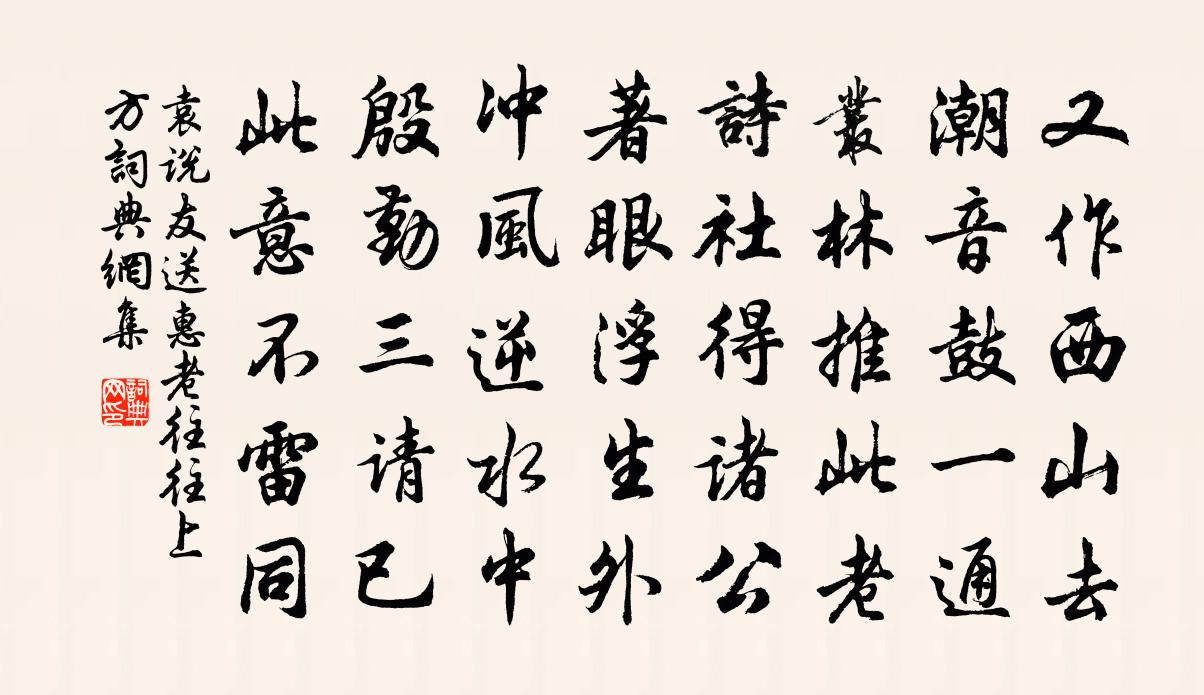 又作西山去
潮音鼓一通
叢林推此老
詩社得諸公
著眼浮生外
冲風逆水中
殷勤三请已
此意不雷同
袁说友送惠老往往上
方詞典網集
詞典
网印